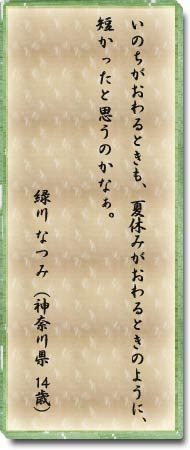 いのちがおわるときも、夏休みがおわるときのように、
短かったと思うのかなぁ。
緑川 なつみ (神奈川県 14歳)